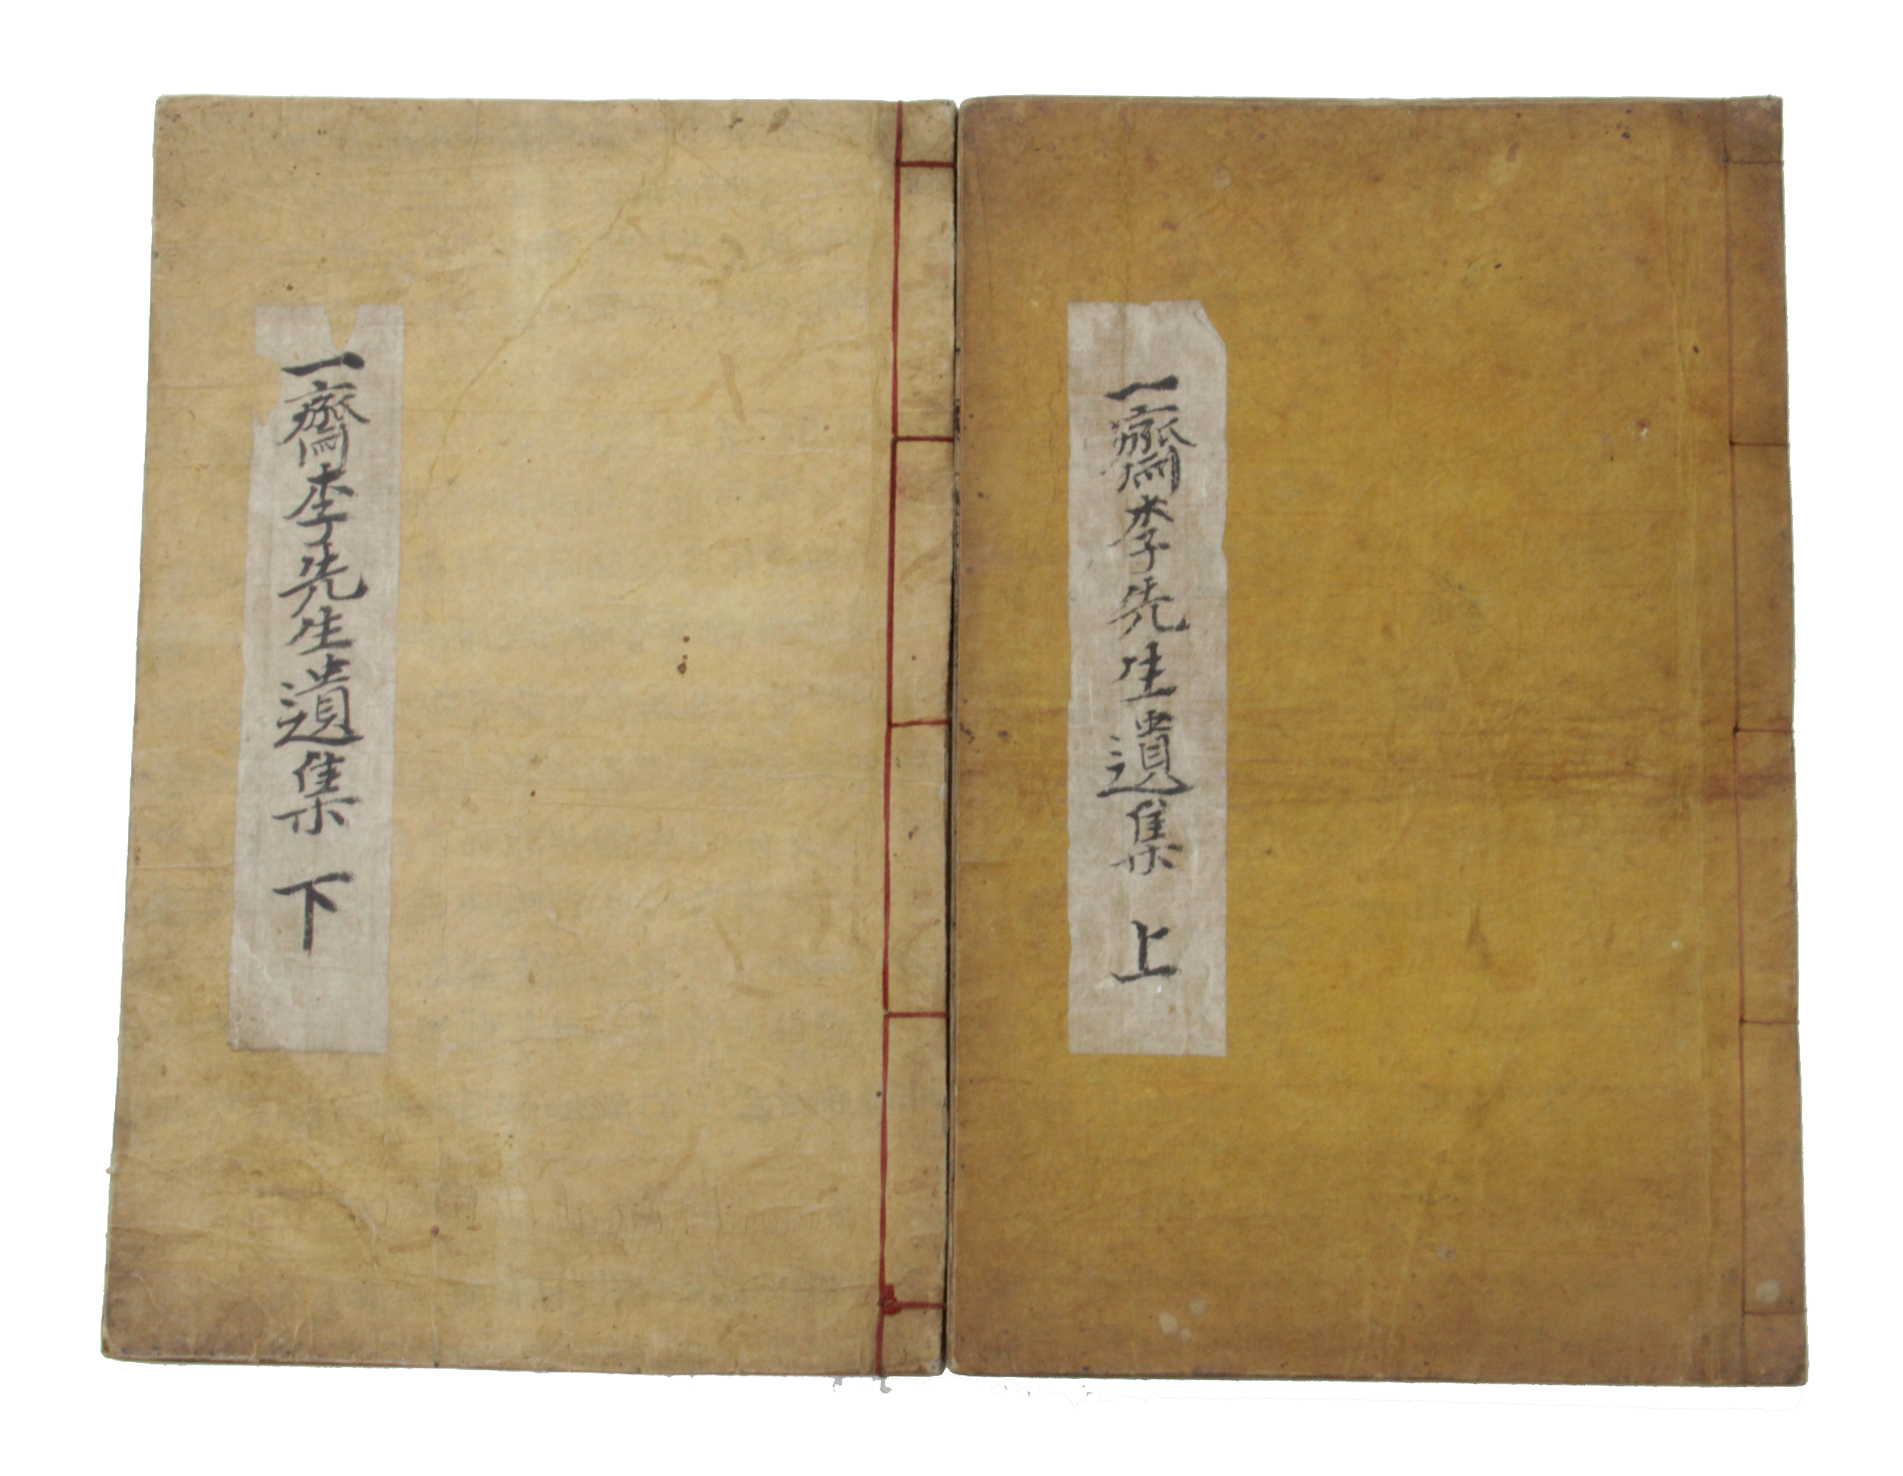 一齋李先生遺集 上
一齋李先生遺集 下